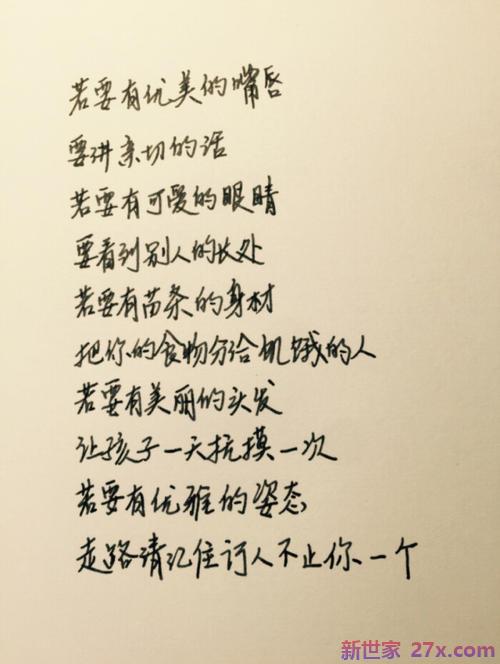 若要有优美的嘴唇
要讲亲切的话
若要有可爱的眼睛
要看到别人的长处
若要有苗条的身材
把你的食物分给饥饿的人
若要有美丽的头发
让孩子一天抚摸一次
若要有优雅的姿态
走路请记住行人不止你一个
新世家 27x.com